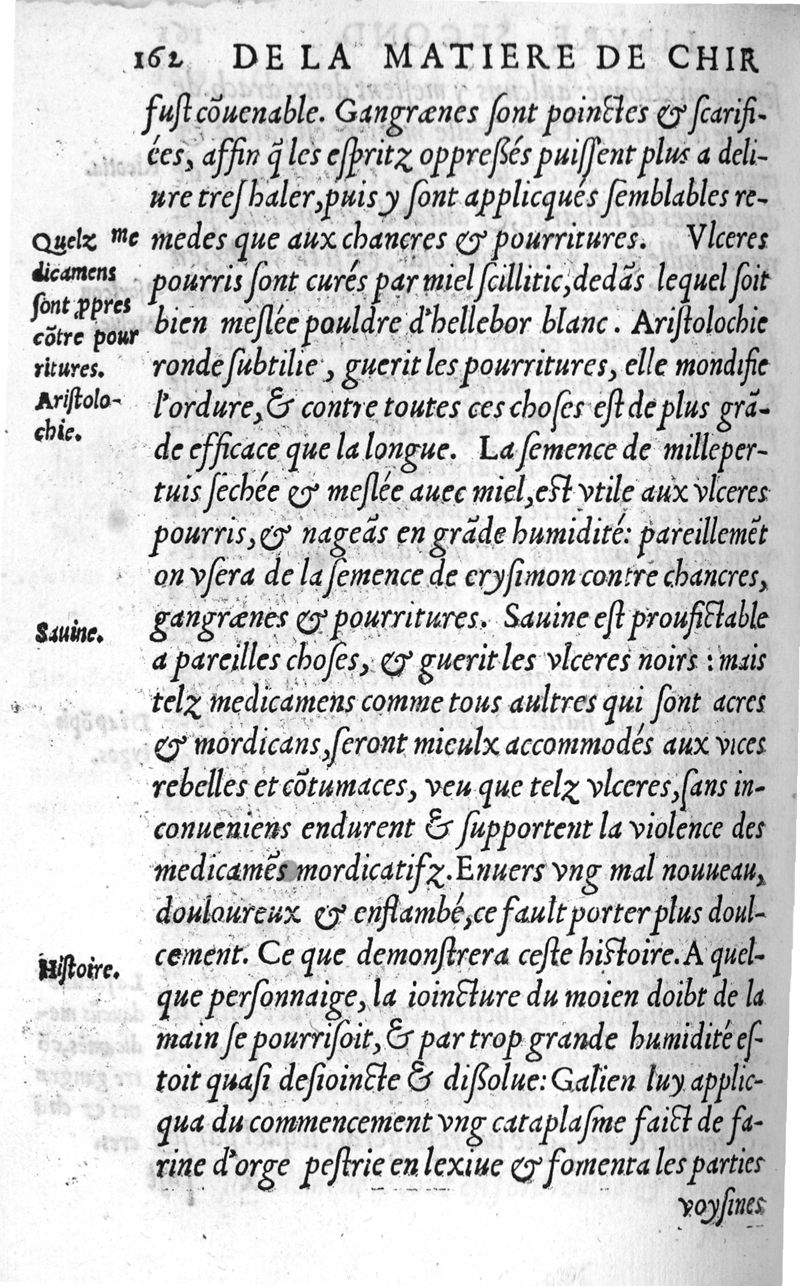 162 DE LA MATIERE DE CHIR
fust cõuenable. Gangrænes sont poinctes & scarifi-
ées, affin q̃ les espritz oppressés puissent plus a deli-
ure treshaler, puis y sont applicqués semblables re-
Quelz me
medes que aux chancres & pourritures. Vlceres
dicamens
pourris sont curés par miel scillitic, dedãs lequel soit
sont ꝓpres
bien meslée pouldre d'hellebor blanc. Aristolochie
cõtre pour
ritures.
ronde subtilie, guerit les pourritures, elle mondifie
Aristolo-
l'ordure, & contre toutes ces choses est de plus grã-
chie.
de efficace que la longue. La semence de milleper-
tuis sechée & meslée auec miel, est vtile aux vlceres
pourris, & nageãs en grãde humidité: pareillemẽt
on vsera de la semence de erysimon contre chancres,
gangrænes & pourritures. Sauine est proufictable
Sauine.
a pareilles choses, & guerit les vlceres noirs : mais
telz medicamens comme tous aultres qui sont acres
& mordicans, seront mieulx accommodés aux vices
rebelles et cõtumaces, veu que telz vlceres, sans in-
conueniens endurent & supportent la violence des
medicamẽs mordicatifz. Enuers vng mal nouueau,
douloureux & enflambé, ce fault porter plus doul-
cement. Ce que demonstrera ceste histoire. A quel-
Histoire.
que personnaige, la ioincture du moien doibt de la
main se pourrisoit, & par trop grande humidité es-
toit quasi desioincte & dissolue: Galien luy applic-
qua du commencement vng cataplasme faict de fa-
rine d'orge pestrie en lexiue & fomenta les parties
voysines